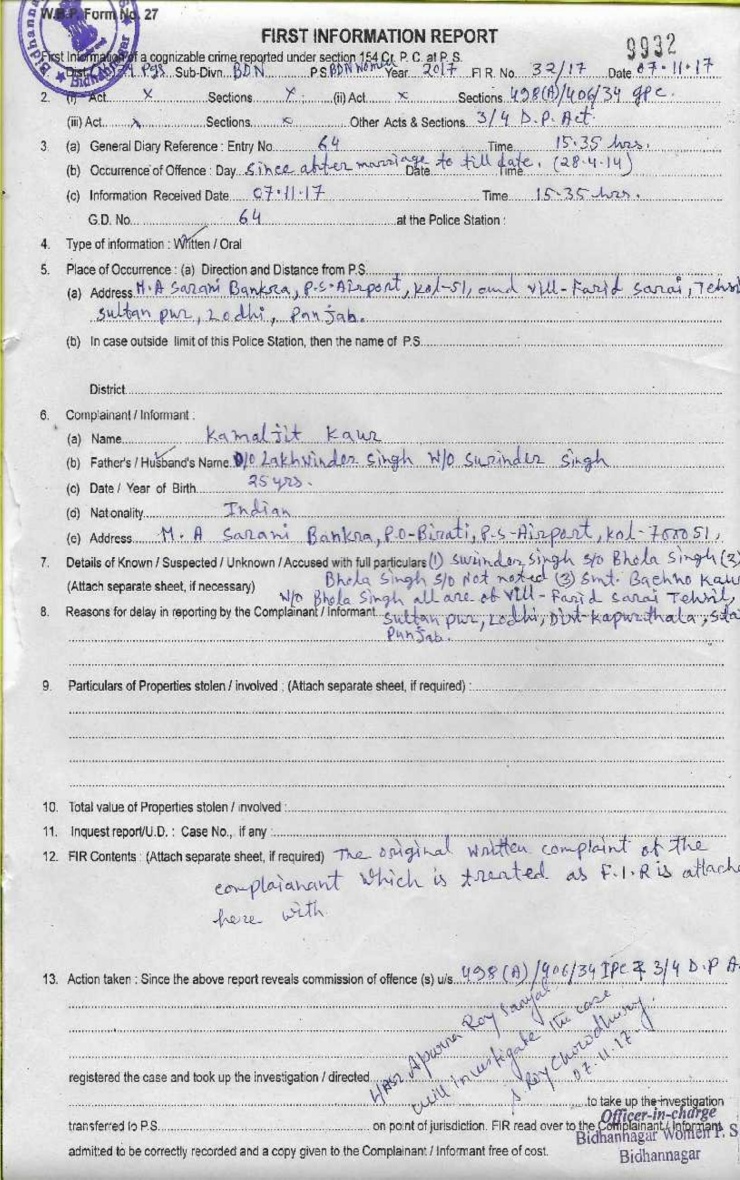 W.B.P. Form No. 27
FIRST INFORMATION REPORT
9932
First Information of a cognizable crime reported under section 154 Cr. P. C. at P. S.
Dist. Pgs Sub-Divn. BDN P.S. BDN Women Year 2017 F I R. No. 32/17 Date 07.11.17
2. (i) Act x Sections x (ii) Act x Sections 498(A)/406/34 IPC.
(iii) Act x Sections x Other Acts & Sections 3/4 D.P. Act.
3. (a) General Diary Reference : Entry No. 64 Time 15.35 hrs.
(b) Occurrence of Offence : Day since after marriage to till date. (28.4.14) Date Time
(c) Information Received Date 07.11.17 Time 15.35 hrs.
G.D. No. 64 at the Police Station :
4. Type of information : Written / Oral
5. Place of Occurrence : (a) Direction and Distance from P.S.
(a) Address M.A Sarani Bankra, P.S-Airport, Kol-51, and vill-Farid Sarai, Tehsil
Sultan pur, Lodhi, Panjab.
(b) In case outside limit of this Police Station, then the name of P.S.
District
6. Complainant / Informant :
(a) Name Kamaljit Kaur
(b) Father's / Husband's Name D/O Lakhvinder Singh W/O Surinder Singh
(c) Date / Year of Birth 25 yrs.
(d) Nationality Indian
(e) Address M.A Sarani Bankra, P.O-Birati, P.S-Airport, Kol-700051,
7. Details of Known / Suspected / Unknown / Accused with full particulars (1) Surinder Singh S/o Bhola Singh (2)
(Attach separate sheet, if necessary) Bhola Singh S/o Not noted (3) Smt. Bachno Kaur
W/o Bhola Singh all are of vill-Farid Sarai Tehsil,
8. Reasons for delay in reporting by the Complainant / Informant Sultan pur, Lodhi, Dist-Kapurthala,
Punjab.
9. Particulars of Properties stolen / involved : (Attach separate sheet, if required) :
10. Total value of Properties stolen / involved :
11. Inquest report/U.D. : Case No., if any :
12. FIR Contents : (Attach separate sheet, if required) The original written complaint of the
complaianant which is treated as F.I.R is attache
here with
13. Action taken : Since the above report reveals commission of offence (s) u/s. 498(A)/406/34 IPC & 3/4 D.P A
LASI Apurna Roy Sanyal
will investigate the case
S. Roy Chowdhury.
07.11.17
registered the case and took up the investigation / directed
to take up the investigation
transferred to P.S. on point of jurisdiction. FIR read over to the Complainant / Informant
admitted to be correctly recorded and a copy given to the Complainant / Informant free of cost.
Officer-in-charge
Bidhannagar Women P. S
Bidhannagar